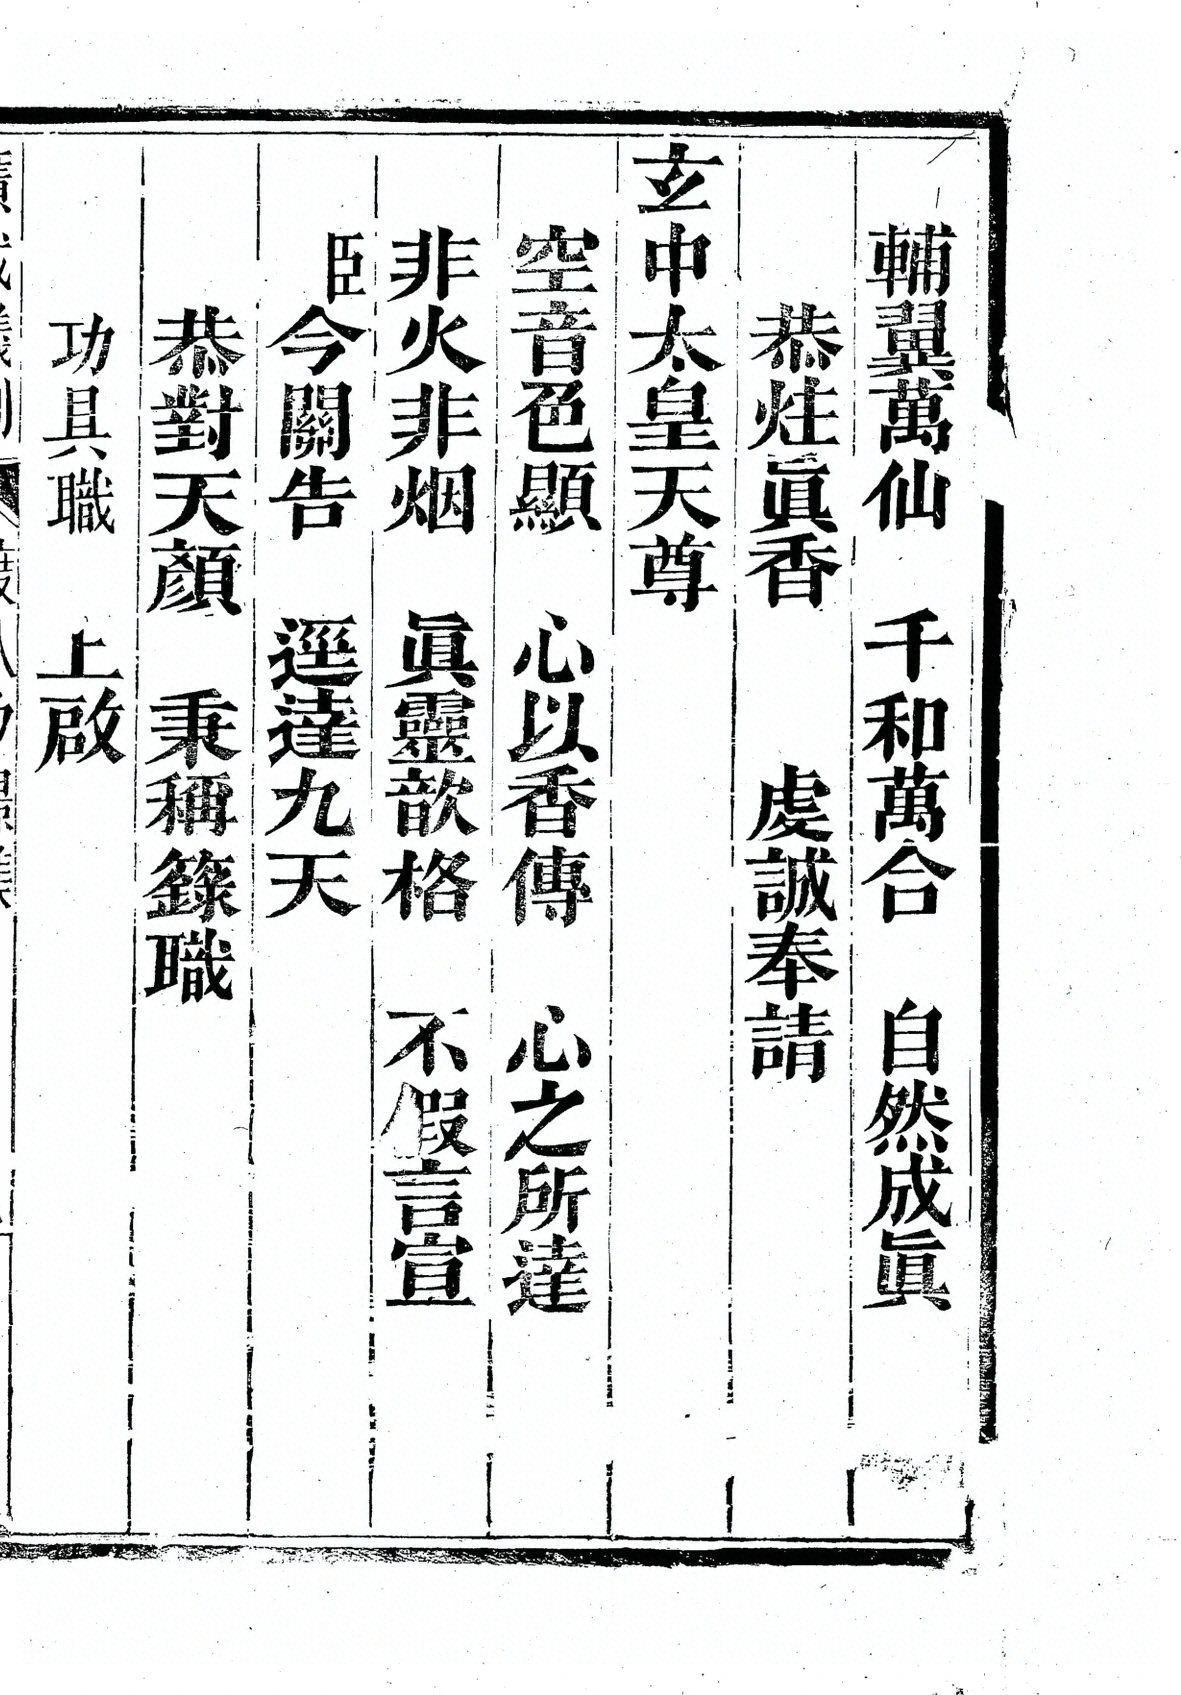 輔翼萬仙　千和萬合　自然成眞
恭炷眞香　　虔誠奉請
玄中太皇天尊
空音色顯　心以香傳　心之所達
非火非烟　眞靈歆格　不假言宣
臣今關告　逕達九天
恭對天顏　秉稱籙職
功具職　上啟